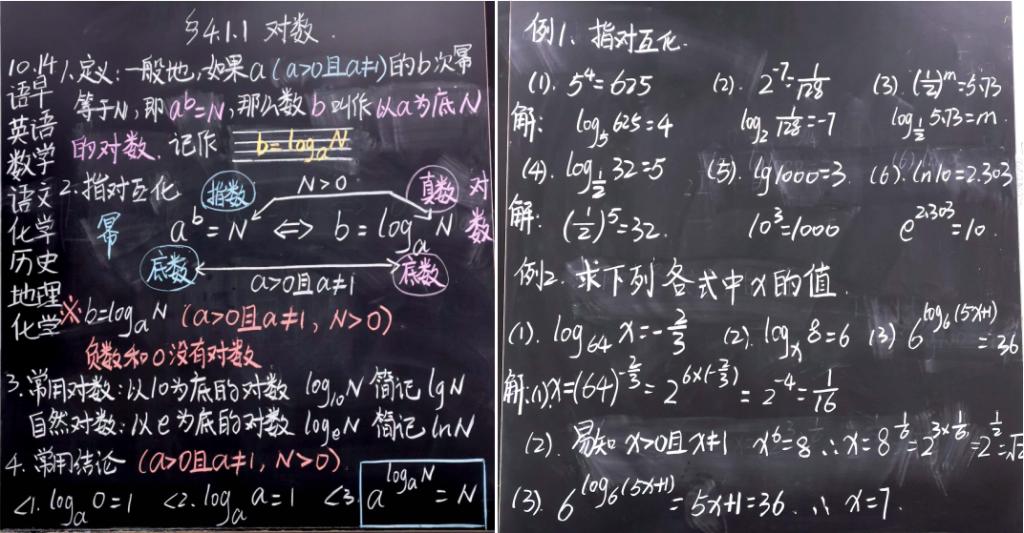 §4.1.1 对数.
10.14
语早
英语
数学
语文
化学
历史
地理
化学
1.定义:一般地,如果a(a>0且a≠1)的b次幂
等于N,即a^b=N,那么数b叫作以a为底N
的对数. 记作 b=log_a N
2.指对互化
指数 N>0 真数 对数
幂 a^b=N ⇔ b=log_a N
底数 a>0且a≠1 底数
※ b=log_a N (a>0且a≠1, N>0)
负数和0没有对数
3.常用对数:以10为底的对数 log_10 N 简记 lgN
自然对数:以e为底的对数 log_e N 简记 lnN
4.常用结论 (a>0且a≠1, N>0)
<1. log_a 0=1 <2. log_a a=1 <3. a^(log_a N)=N
例1、指对互化.
(1). 5^4=625 (2). 2^-7=1/128 (3). (1/2)^m=5.73
解: log_5 625=4 log_2 1/128=-7 log_1/2 5.73=m.
(4). log_1/2 32=5 (5). lg1000=3. (6). ln10=2.303
解: (1/2)^5=32. 10^3=1000 e^2.303=10.
例2. 求下列各式中x的值.
(1). log_64 x=-2/3 (2). log_x 8=6 (3) 6^(log_6(5x+1))=36
解:(1).x=(64)^(-2/3)=2^(6×(-2/3))=2^-4=1/16
(2). 易知 x>0且x≠1 x^6=8 ∴x=8^(1/6)=2^(3×1/6)=2^(1/2)=√2
(3). 6^(log_6(5x+1))=5x+1=36. ∴ x=7.